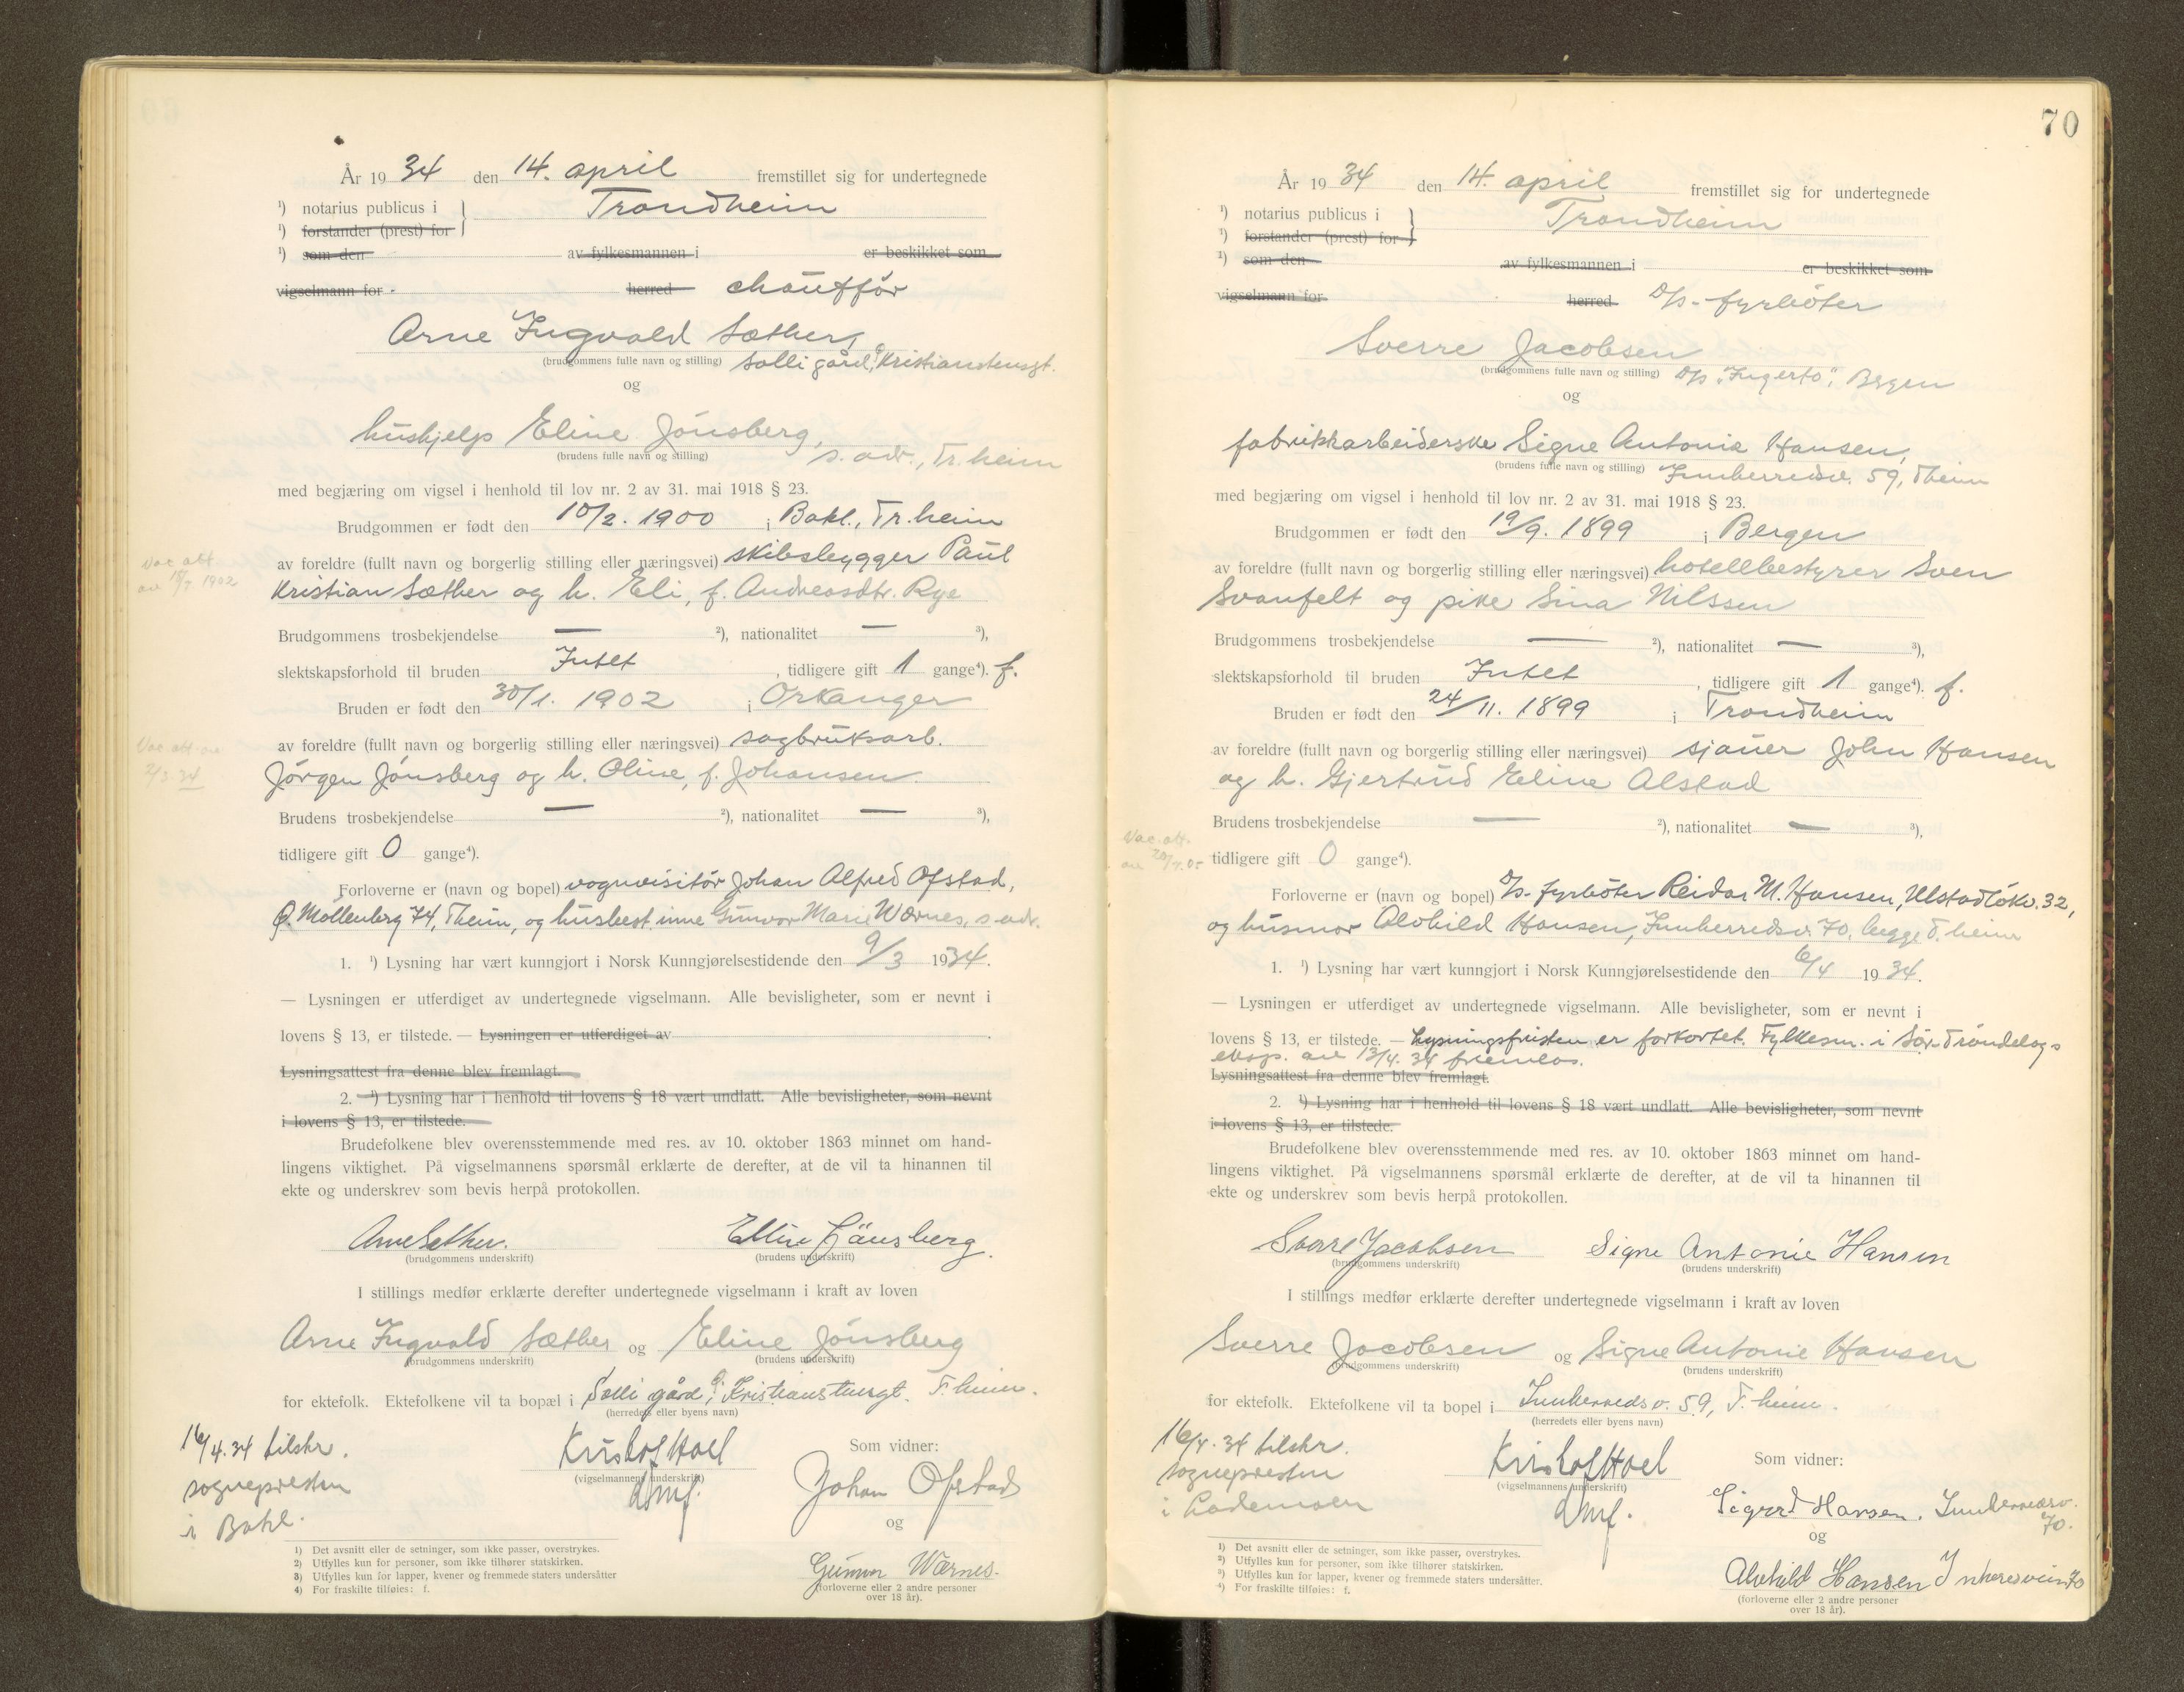 År 1934 den 14. april fremstillet sig for undertegnede
¹) notarius publicus i } Trondheim
¹) forstander (prest) for
¹) som den av fylkesmannen i er beskikket som
vigselmann for herred chauffør
Arne Ingvald Sæther,
(brudgommens fulle navn og stilling) Solli gård, Kristianstensgt.
og
hushjelp Eline Jønsberg,
(brudens fulle navn og stilling) s. adr., Tr.heim
med begjæring om vigsel i henhold til lov nr. 2 av 31. mai 1918 § 23.
Brudgommen er født den 10/2. 1900 i Bakl., Tr.heim
av foreldre (fullt navn og borgerlig stilling eller næringsvei) skibsbygger Paul
Vac. att.
av 18/7 1902
Kristian Sæther og h. Eli, f. Andreasdtr. Rye
Brudgommens trosbekjendelse — ²), nationalitet — ³),
slektskapsforhold til bruden Intet , tidligere gift 1 gange⁴). f.
Bruden er født den 30/1. 1902 i Orkanger
av foreldre (fullt navn og borgerlig stilling eller næringsvei) sagbruksarb.
Vac. att. av
2/3 34
Jørgen Jønsberg og h. Oline, f. Johansen
Brudens trosbekjendelse — ²), nationalitet — ³),
tidligere gift 0 gange⁴).
Forloverne er (navn og bopel) vognvisitør Johan Alfred Ofstad,
Ø. Møllenberg 74, Theim, og husbest.inne Gunvor Marie Wærnes, s. adr.
1. ¹) Lysning har vært kunngjort i Norsk Kunngjørelsestidende den 9/3 1934.
— Lysningen er utferdiget av undertegnede vigselmann. Alle bevisligheter, som er nevnt i
lovens § 13, er tilstede. — Lysningen er utferdiget av .
Lysningsattest fra denne blev fremlagt.
2. ¹) Lysning har i henhold til lovens § 18 vært undlatt. Alle bevisligheter, som nevnt
i lovens § 13, er tilstede.
Brudefolkene blev overensstemmende med res. av 10. oktober 1863 minnet om hand-
lingens viktighet. På vigselmannens spørsmål erklærte de derefter, at de vil ta hinannen til
ekte og underskrev som bevis herpå protokollen.
Arne Sæther. Elline Jönsberg.
(brudgommens underskrift) (brudens underskrift)
I stillings medfør erklærte derefter undertegnede vigselmann i kraft av loven
Arne Ingvald Sæther og Eline Jønsberg
(brudgommens underskrift) (brudens underskrift)
for ektefolk. Ektefolkene vil ta bopæl i Solli gård, Kristianstensgt. T.heim.
(herredets eller byens navn)
16/4.34 tilskr.
sognepresten
i Bakl.
Kristof Hoel
(vigselmannens underskrift)
Som vidner:
Johan Ofstad
og
Gunvor Wærnes.
(forloverne eller 2 andre personer
over 18 år).
1) Det avsnitt eller de setninger, som ikke passer, overstrykes.
2) Utfylles kun for personer, som ikke tilhører statskirken.
3) Utfylles kun for lapper, kvener og fremmede staters undersåtter
4) For fraskilte tilføies: f.
70
År 1934 den 14. april fremstillet sig for undertegnede
¹) notarius publicus i } Trondheim
¹) forstander (prest) for
¹) som den av fylkesmannen i er beskikket som
vigselmann for herred D/s.-fyrbøter
Sverre Jacobsen
(brudgommens fulle navn og stilling) D/s. „Ingerto", Bergen
og
fabrikkarbeiderske Signe Antonie Hansen,
(brudens fulle navn og stilling) Innherredsv. 59, Theim
med begjæring om vigsel i henhold til lov nr. 2 av 31. mai 1918 § 23.
Brudgommen er født den 19/9. 1899 i Bergen
av foreldre (fullt navn og borgerlig stilling eller næringsvei) hotellbestyrer Sven
Svanfelt og pike Sina Nilssen
Brudgommens trosbekjendelse — ²), nationalitet — ³),
slektskapsforhold til bruden Intet , tidligere gift 1 gange⁴). f.
Bruden er født den 24/11. 1899 i Trondheim
av foreldre (fullt navn og borgerlig stilling eller næringsvei) sjauer John Hansen
og h. Gjertrud Eline Alstad
Brudens trosbekjendelse — ²), nationalitet — ³),
Vac. att.
av 20/4.05
tidligere gift 0 gange⁴).
Forloverne er (navn og bopel) D/s. fyrbøter Reidar M. Hansen, Ulstadløkv. 32,
og husmor Alvhild Hansen, Innherredsv. 70, begge T.heim
1. ¹) Lysning har vært kunngjort i Norsk Kunngjørelsestidende den 6/4 1934.
— Lysningen er utferdiget av undertegnede vigselmann. Alle bevisligheter, som er nevnt i
lovens § 13, er tilstede. — Lysningsfristen er forkortet. Fylkesm. i Sør-Trøndelags
eksp. av 13/4. 34 fremlas.
Lysningsattest fra denne blev fremlagt.
2. ¹) Lysning har i henhold til lovens § 18 vært undlatt. Alle bevisligheter, som nevnt
i lovens § 13, er tilstede.
Brudefolkene blev overensstemmende med res. av 10. oktober 1863 minnet om hand-
lingens viktighet. På vigselmannens spørsmål erklærte de derefter, at de vil ta hinannen til
ekte og underskrev som bevis herpå protokollen.
Sverre Jacobsen Signe Antonie Hansen
(brudgommens underskrift) (brudens underskrift)
I stillings medfør erklærte derefter undertegnede vigselmann i kraft av loven
Sverre Jacobsen og Signe Antonie Hansen
(brudgommens underskrift) (brudens underskrift)
for ektefolk. Ektefolkene vil ta bopel i Innherredsv. 59, T.heim.
(herredets eller byens navn)
16/4.34 tilskr.
sognepresten
i Lademoen
Kristof Hoel
(vigselmannens underskrift)
Som vidner:
Sigurd Hansen. Innherredsv.
70.
og
Alvhild Hansen Inheresveien 70
(forloverne eller 2 andre personer
over 18 år).
¹) Det avsnitt eller de setninger, som ikke passer, overstrykes.
²) Utfylles kun for personer, som ikke tilhører statskirken.
³) Utfylles kun for lapper, kvener og fremmede staters undersåtter.
⁴) For fraskilte tilføies: f.